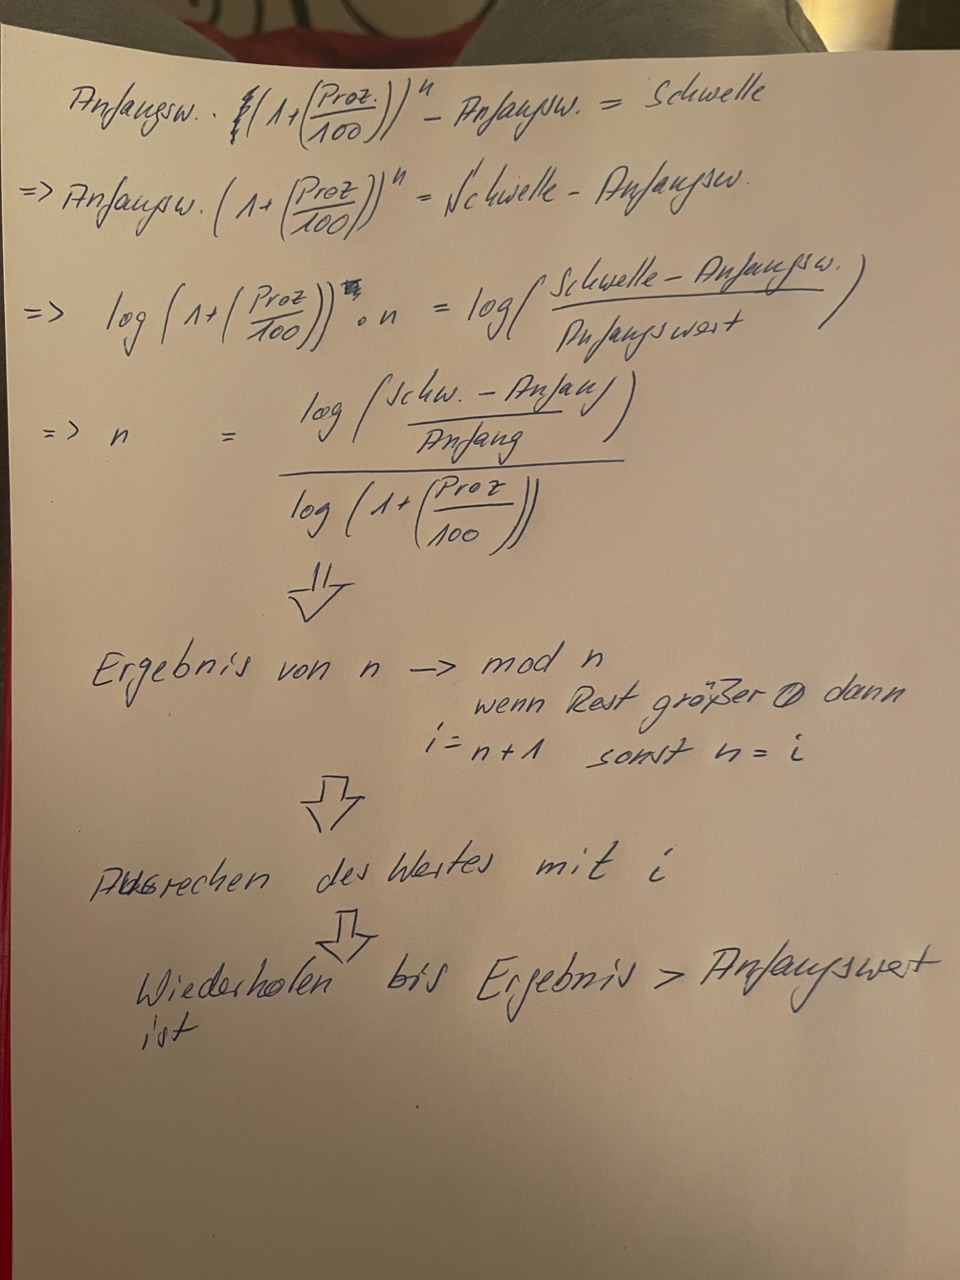 Anfangsw. · (1+(Proz./100))^n - Anfangsw. = Schwelle
=> Anfangsw. (1+(Proz/100))^n = Schwelle - Anfangsw.
=> log (1+(Proz/100)) · n = log( (Schwelle - Anfangsw.)/Anfangswert )
=> n = log( (Schw. - Anfang)/Anfang ) / log (1+(Proz/100))
Ergebnis von n -> mod n
wenn Rest größer 0 dann
i = n+1 sonst n = i
Ausrechen des Wertes mit i
Wiederholen bis Ergebnis > Anfangswert
ist